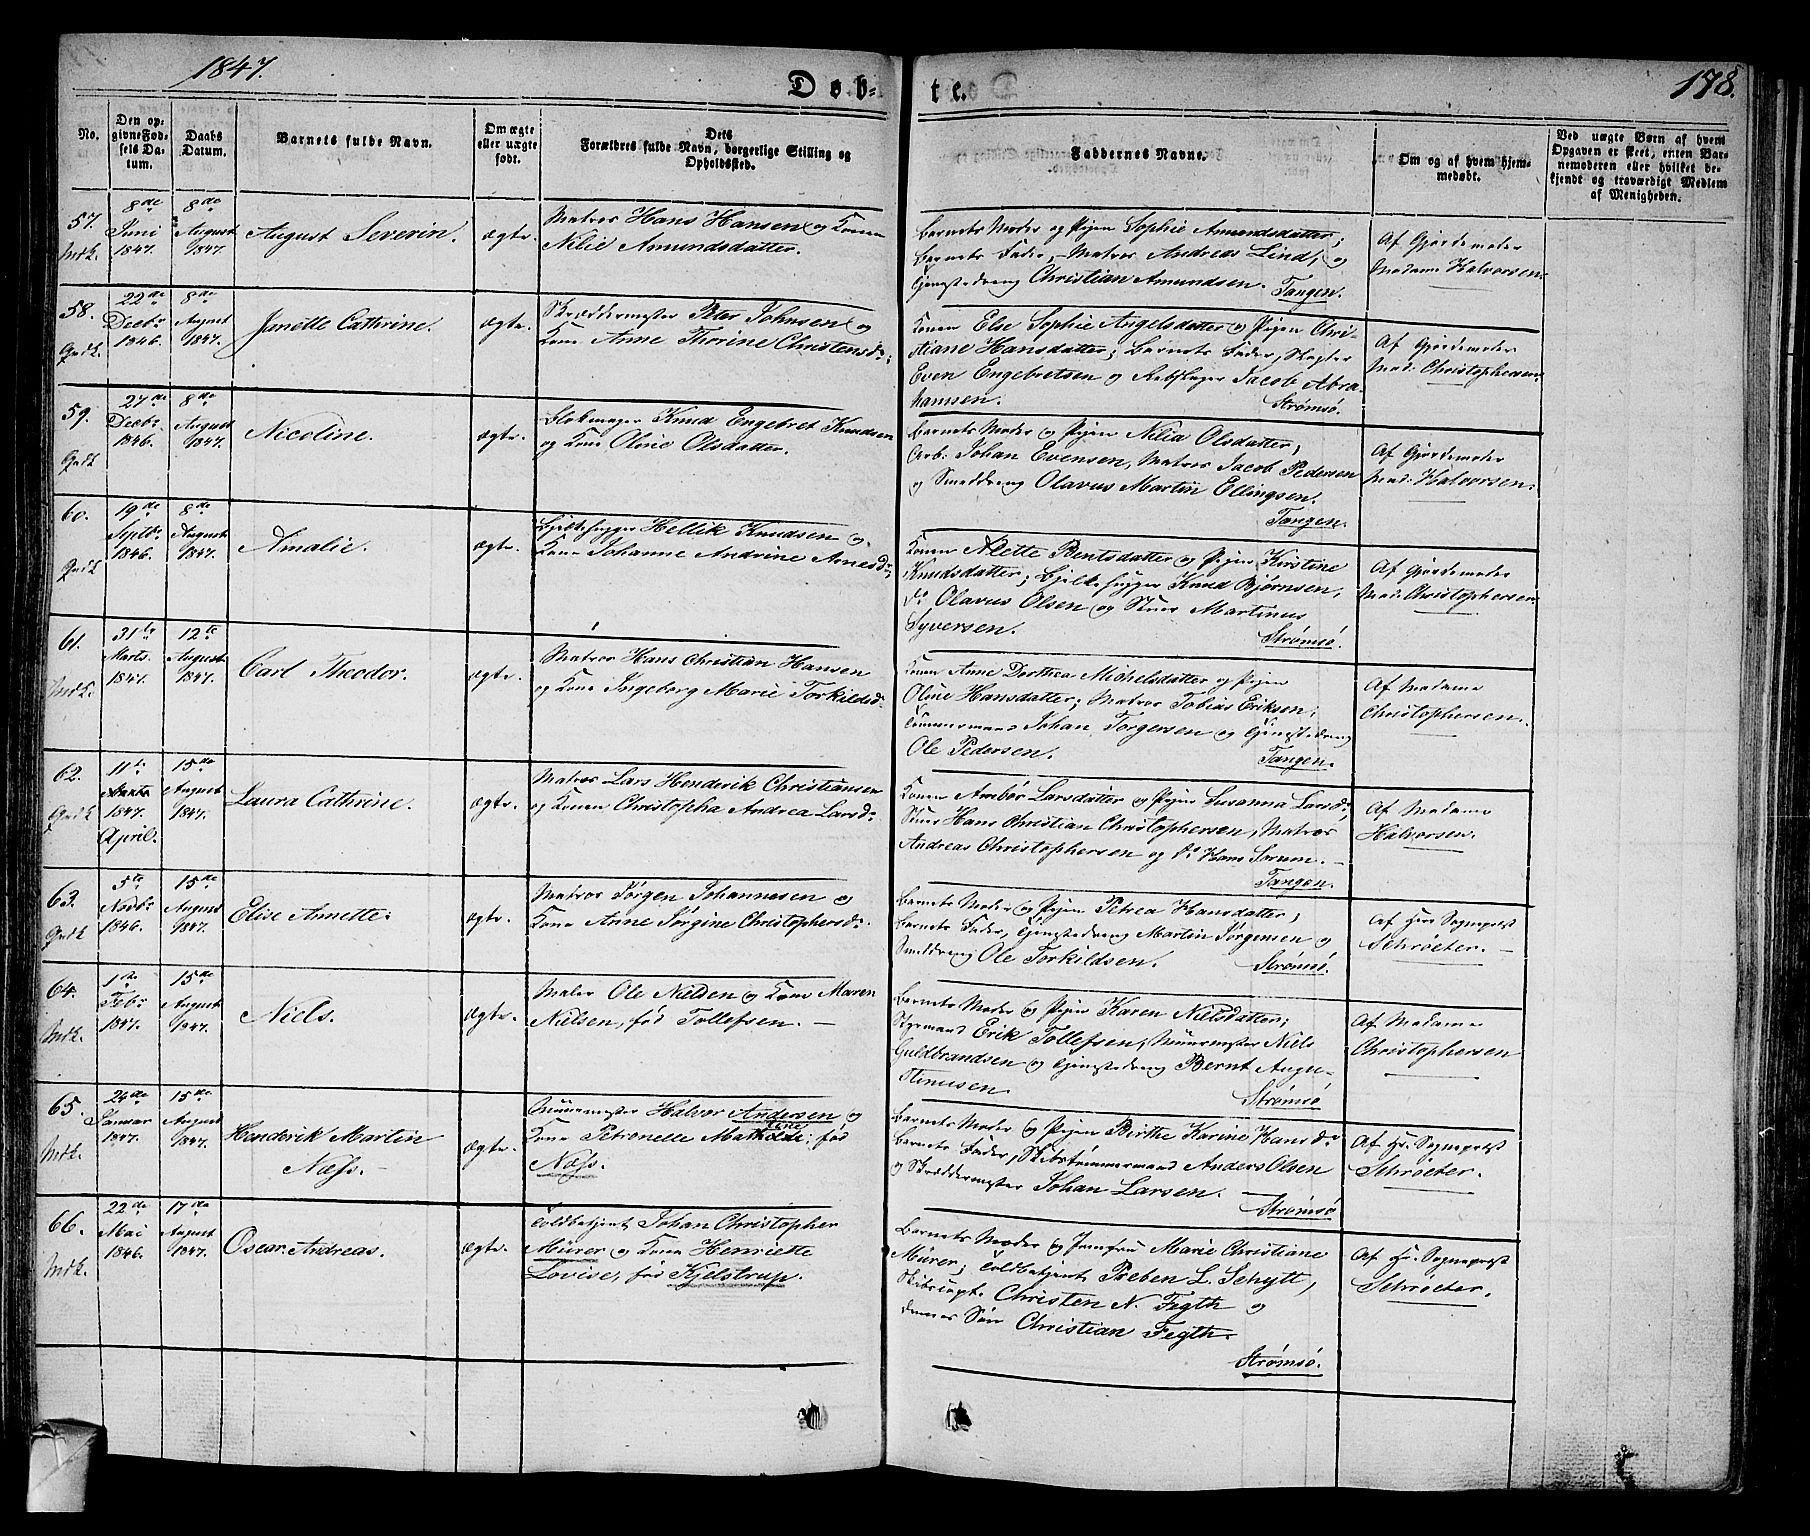 1847.
Døb-
te.
178.
No.
Den op-
givne Fød-
sels Da-
tum.
Daabs
Datum.
Barnets fulde Navn.
Om ægte
eller uægte
født.
Dets
Forældres fulde Navn, borgerlige Stilling og
Opholdssted.
Faddernes Navne.
Om og af hvem hjem-
medøbt.
Ved uægte Børn af hvem
Opgaven er skeet, enten Bar-
nemoderen eller hvilket be-
kjendt og troværdigt Medlem
af Menigheden.
57.
Mdk.
8de
Juni
1847.
8de
August
1847.
August Severin.
ægte.
Matros Hans Hansen og Konen
Nilie Amundsdatter.
Barnets Moder og Pigen Sophie Amundsdatter;
Barnets Fader, Matros Andreas Lind, og
Christian Amundsen. Tangen.
Af Gjordemoder
Madame Halvorsen.
58.
Qndk.
22de
Decbr
1846.
8de
August
1847.
Janette Cathrine.
ægte.
Skræddermester Peter Johnsen og
Kone Anne Thorine Christensd:
Konen Else Sophie Angelsdatter og Pigen Chri-
stiane Hansdatter; Barnets Fader, Slagter
Even Engebretsen og Rebslager Jacob Abra-
hamsen. Strømsø.
Af Gjordemoder
Mad: Christophersen.
59.
Qndk
27de
Decbr
1846.
8de
August
1847.
Nicoline.
ægte.
Blokmager Knud Engebret Knudsen
og Kone Oline Olsdatter.
Barnets Moder og Pigen Nilia Olsdatter;
Arb: Johan Evensen, Matros Jacob Pedersen
og Smeddreng Olavus Martin Ellingsen.
Tangen.
Af Gjordemoder
Mad: Halvorsen.
60.
Qndk
19de
Septbr
1846.
8de
August
1847.
Amalie.
ægte.
Bjelkehugger Hellik Knudsen og
Kone Johanne Andrine Arnesd:
Konen Alette Bentsdatter og Pigen Kirstine
Knudsdatter; Bjelkehugger Knud Bjørnsen,
do Olavus Olsen og Stuer Martinus
Syversen. Strømsø.
Af Gjordemoder
Mad: Christophersen.
61.
Mdk.
31te
Marts
1847.
12te
August
1847.
Carl Theodor.
ægte.
Matros Hans Christian Hansen
og Kone Ingeborg Marie Torkildsd:
Konen Anne Dorthea Michelsdatter og Pigen
Oline Hansdatter; Matros Tobias Eriksen;
Tømmermand Johan Torgersen og
Ole Pedersen. Tangen.
Af Madame
Christophersen.
62.
Qndk
11te
1847.
April.
15de
August
1847.
Laura Cathrine.
ægte.
Matros Lars Henderik Christiansen
og Konen Christopha Andrea Larsd:
Konen Ambør Larsdatter og Pigen Susanna Larsd:;
Stuer Hans Christian Christophersen, Matros
Andreas Christophersen og do Hans
Tangen.
Af Madame
Halvorsen.
63.
Qndk
5te
Novbr
1846.
15de
August
1847.
Elise Annette.
ægte.
Matros Jørgen Johannesen og
Kone Anne Jørgine Christophersd:
Barnets Moder og Pigen Petrea Hansdatter;
Barnets Fader, Martin Jørgensen og
Smeddreng Ole Torkildsen. Strømsø.
Af Herr Sognepræst
Schrøeter.
64.
Mdk.
1ste
Febr
1847.
15de
August
1847.
Niels.
ægte.
Maler Ole Nielsen og Kone Maren
Nielsen, fød Tollefsen.
Barnets Moder og Pigen Karen Nielsdatter;
Styrmand Erik Tollefsen, Muurmester Niels
Guldbrandsen og Bernt Augu-
stinusen. Strømsø
Af Madame
Christophersen
65.
Mdk.
24de
Januar
1847.
15de
August
1847.
Henderik Martin
Næss.
ægte.
Muurmester Halvor Andersen og
Kone Petronelle Mathilde, fød
Næss.
Barnets Moder og Pigen Birthe Karine Hansd:
Barnets Fader, Skibstømmermand Anders Olsen
og Skræddermester Johan Larsen.
Strømsø
Af Hr. Sognepræst
Schrøeter.
66.
Mdk.
22de
Mai
1846.
17de
August
1847.
Oscar Andreas.
ægte.
Toldbetjent Johan Christopher
Mürer og Kone Henriette
Lovise, fød Kjelstrup.
Barnets Moder og Jomfru Marie Christiane
Mürer; Toldbetjent Preben L. Schytt,
Skibscapt. Christen N. Fegth og
dennes Søn Christian Fegth.
Strømsø.
Af Hr. Sognepræst
Schrøeter.